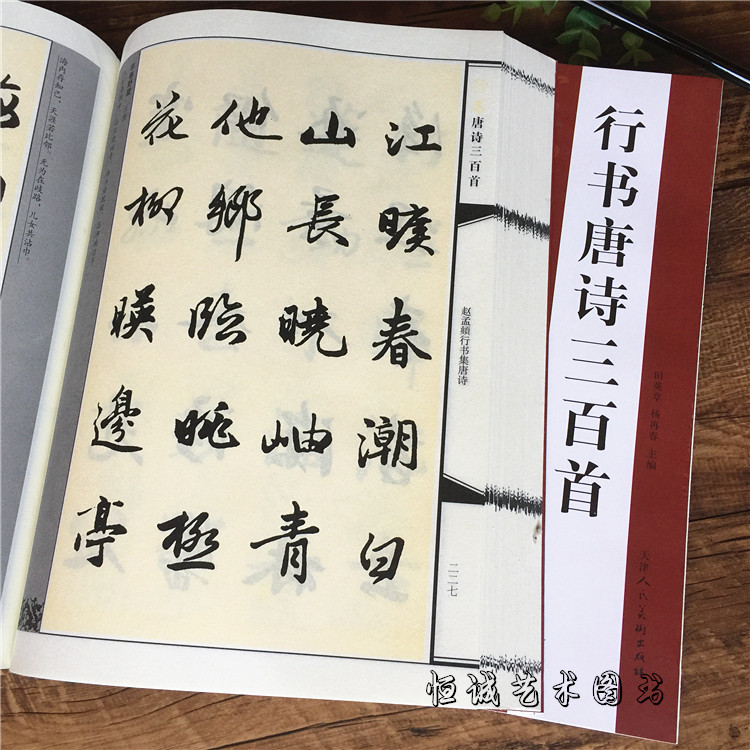 江曠春潮白
山長曉岫青
他鄉臨眺極
花柳暎邊亭
唐诗三百首
赵孟頫行书集唐诗
二二七
海内存知己，天涯若比邻。无为在歧路，儿女共沾巾。
行书唐诗三百首
田英章 杨再春 主编
天津人民美术出版社
恒诚艺术图书